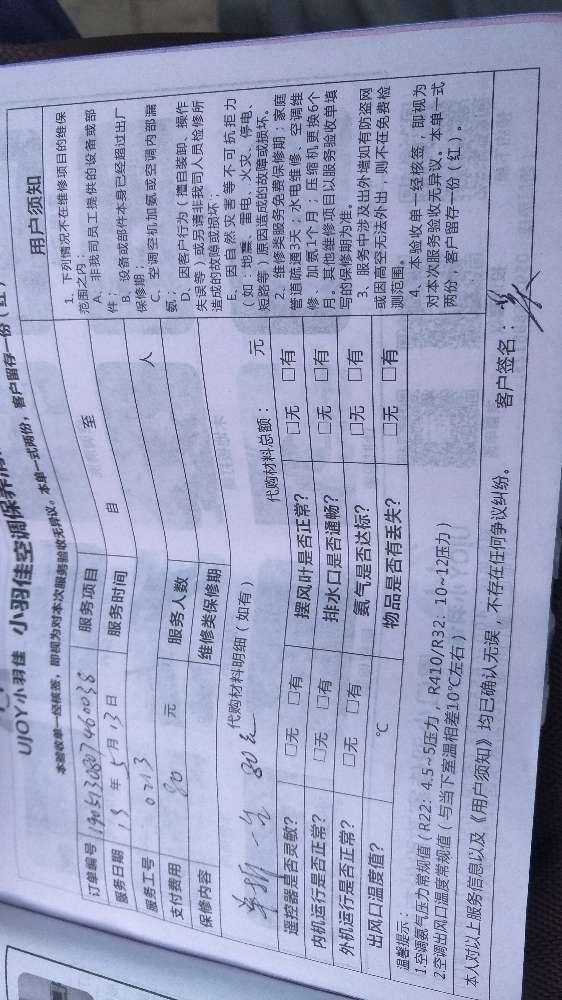 UJOY小羽佳 小羽佳空调保养清
本验收单一经核签，即视为对本次服务验收无异议。本单一式两份，客户留存一份（红）
订单编号 1905130807460038 服务项目
服务日期 19 年 5 月 13 日 服务时间 自 至
服务工号 0713
支付费用 80 元 服务人数 人
保修内容 维修类保修期
代购材料明细（如有） 代购材料总额： 元
单拆一台 80元
遥控器是否灵敏？ □无 □有 摆风叶是否正常？ □无 □有
内机运行是否正常？ □无 □有 排水口是否通畅？ □无 □有
外机运行是否正常？ □无 □有 氨气是否达标？ □无 □有
出风口温度值？ ℃ 物品是否有丢失？ □无 □有
温馨提示：
1.空调氨气压力常规值（R22: 4.5~5压力，R410/R32: 10~12压力）
2.空调出风口温度常规值（与当下室温相差10℃左右）
本人对以上服务信息以及《用户须知》均已确认无误，不存在任何争议纠纷。 客户签名：
用户须知
1、下列情况不在维修项目的维保
范围之内：
A、非我司员工提供的设备或部
件；
B、设备或部件本身已经超过出厂
保修期；
C、空调空机加氨或空调内部漏
氨；
D、因客户行为（擅自装卸、操作
失误等）或另请非我司人员检修所
造成的故障或损坏；
E、因自然灾害等不可抗拒力
（如：地震、雷电、火灾、停电、
短路等）原因造成的故障或损坏。
2、维修类服务免费保修期：家庭
管道疏通3天；水电维修、空调维
修、加氨1个月；压缩机更换6个
月。其他维修项目以服务验收单填
写的保修期为准。
3、服务中涉及出外墙如有防盗网
或因高空无法外出，则不在免费检
测范围。
4、本验收单一经核签，即视为
对本次服务验收无异议。本单一式
两份，客户留存一份（红）。